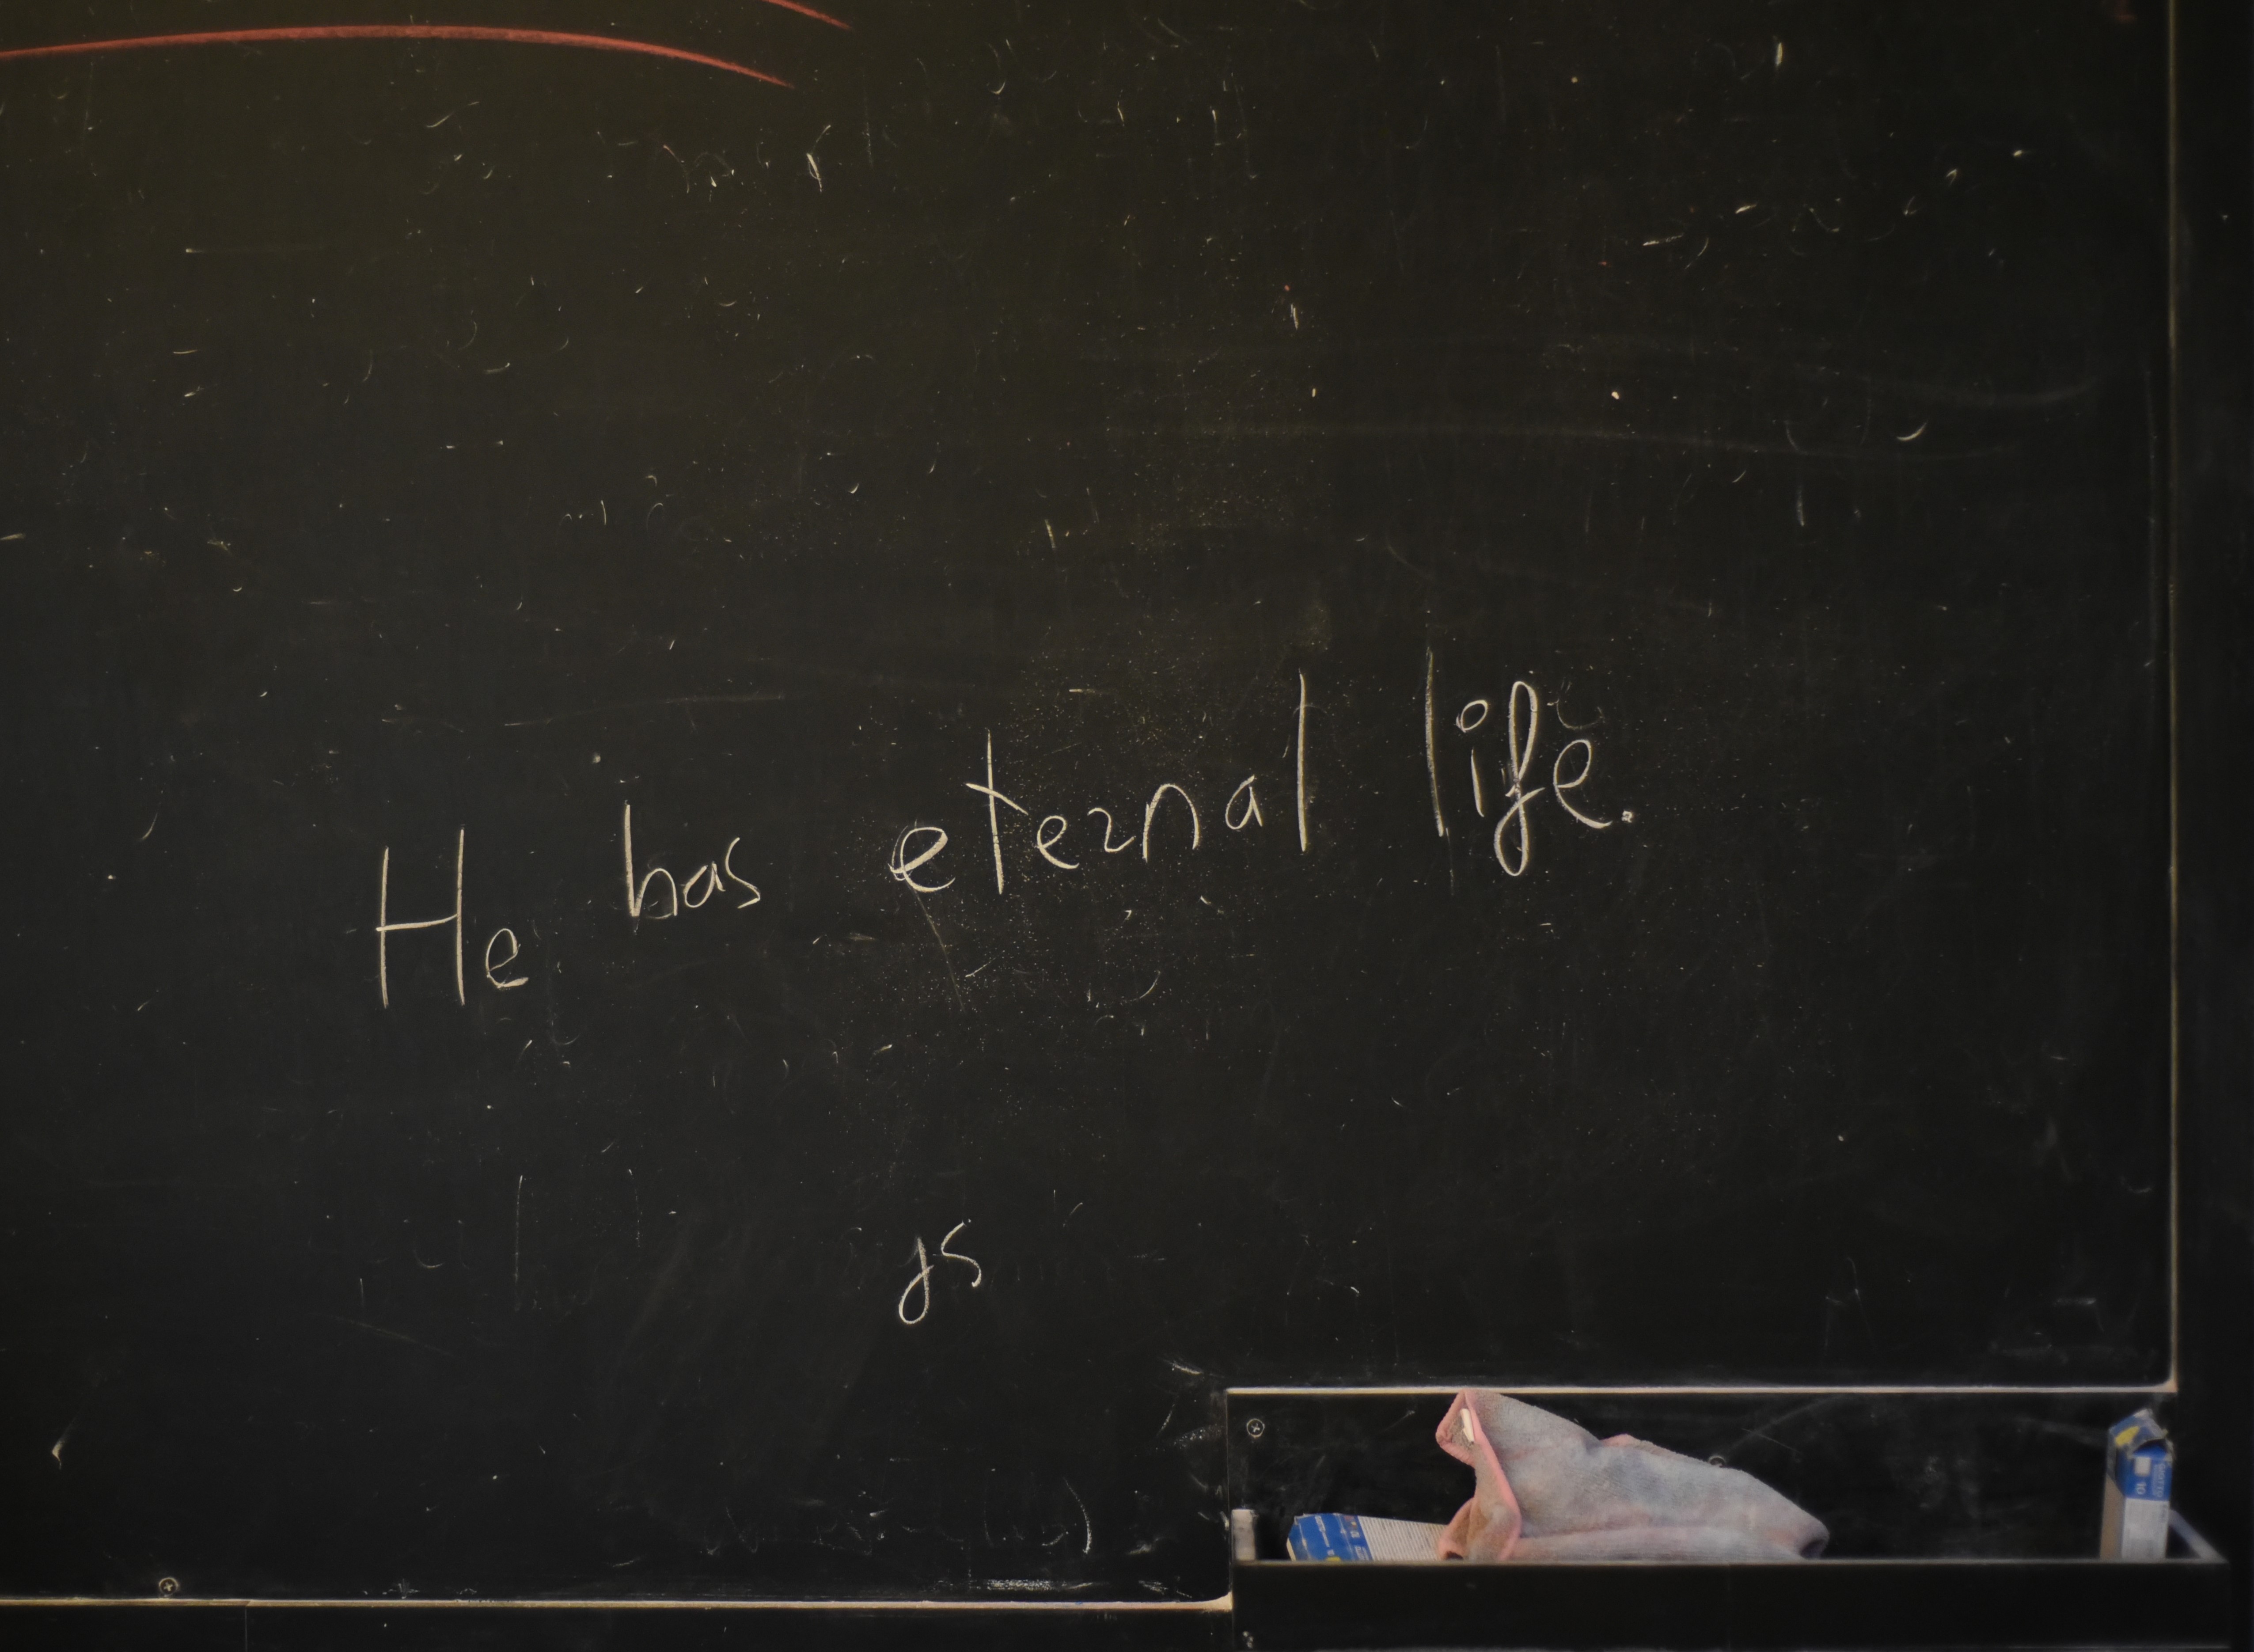 He has eternal life.
js